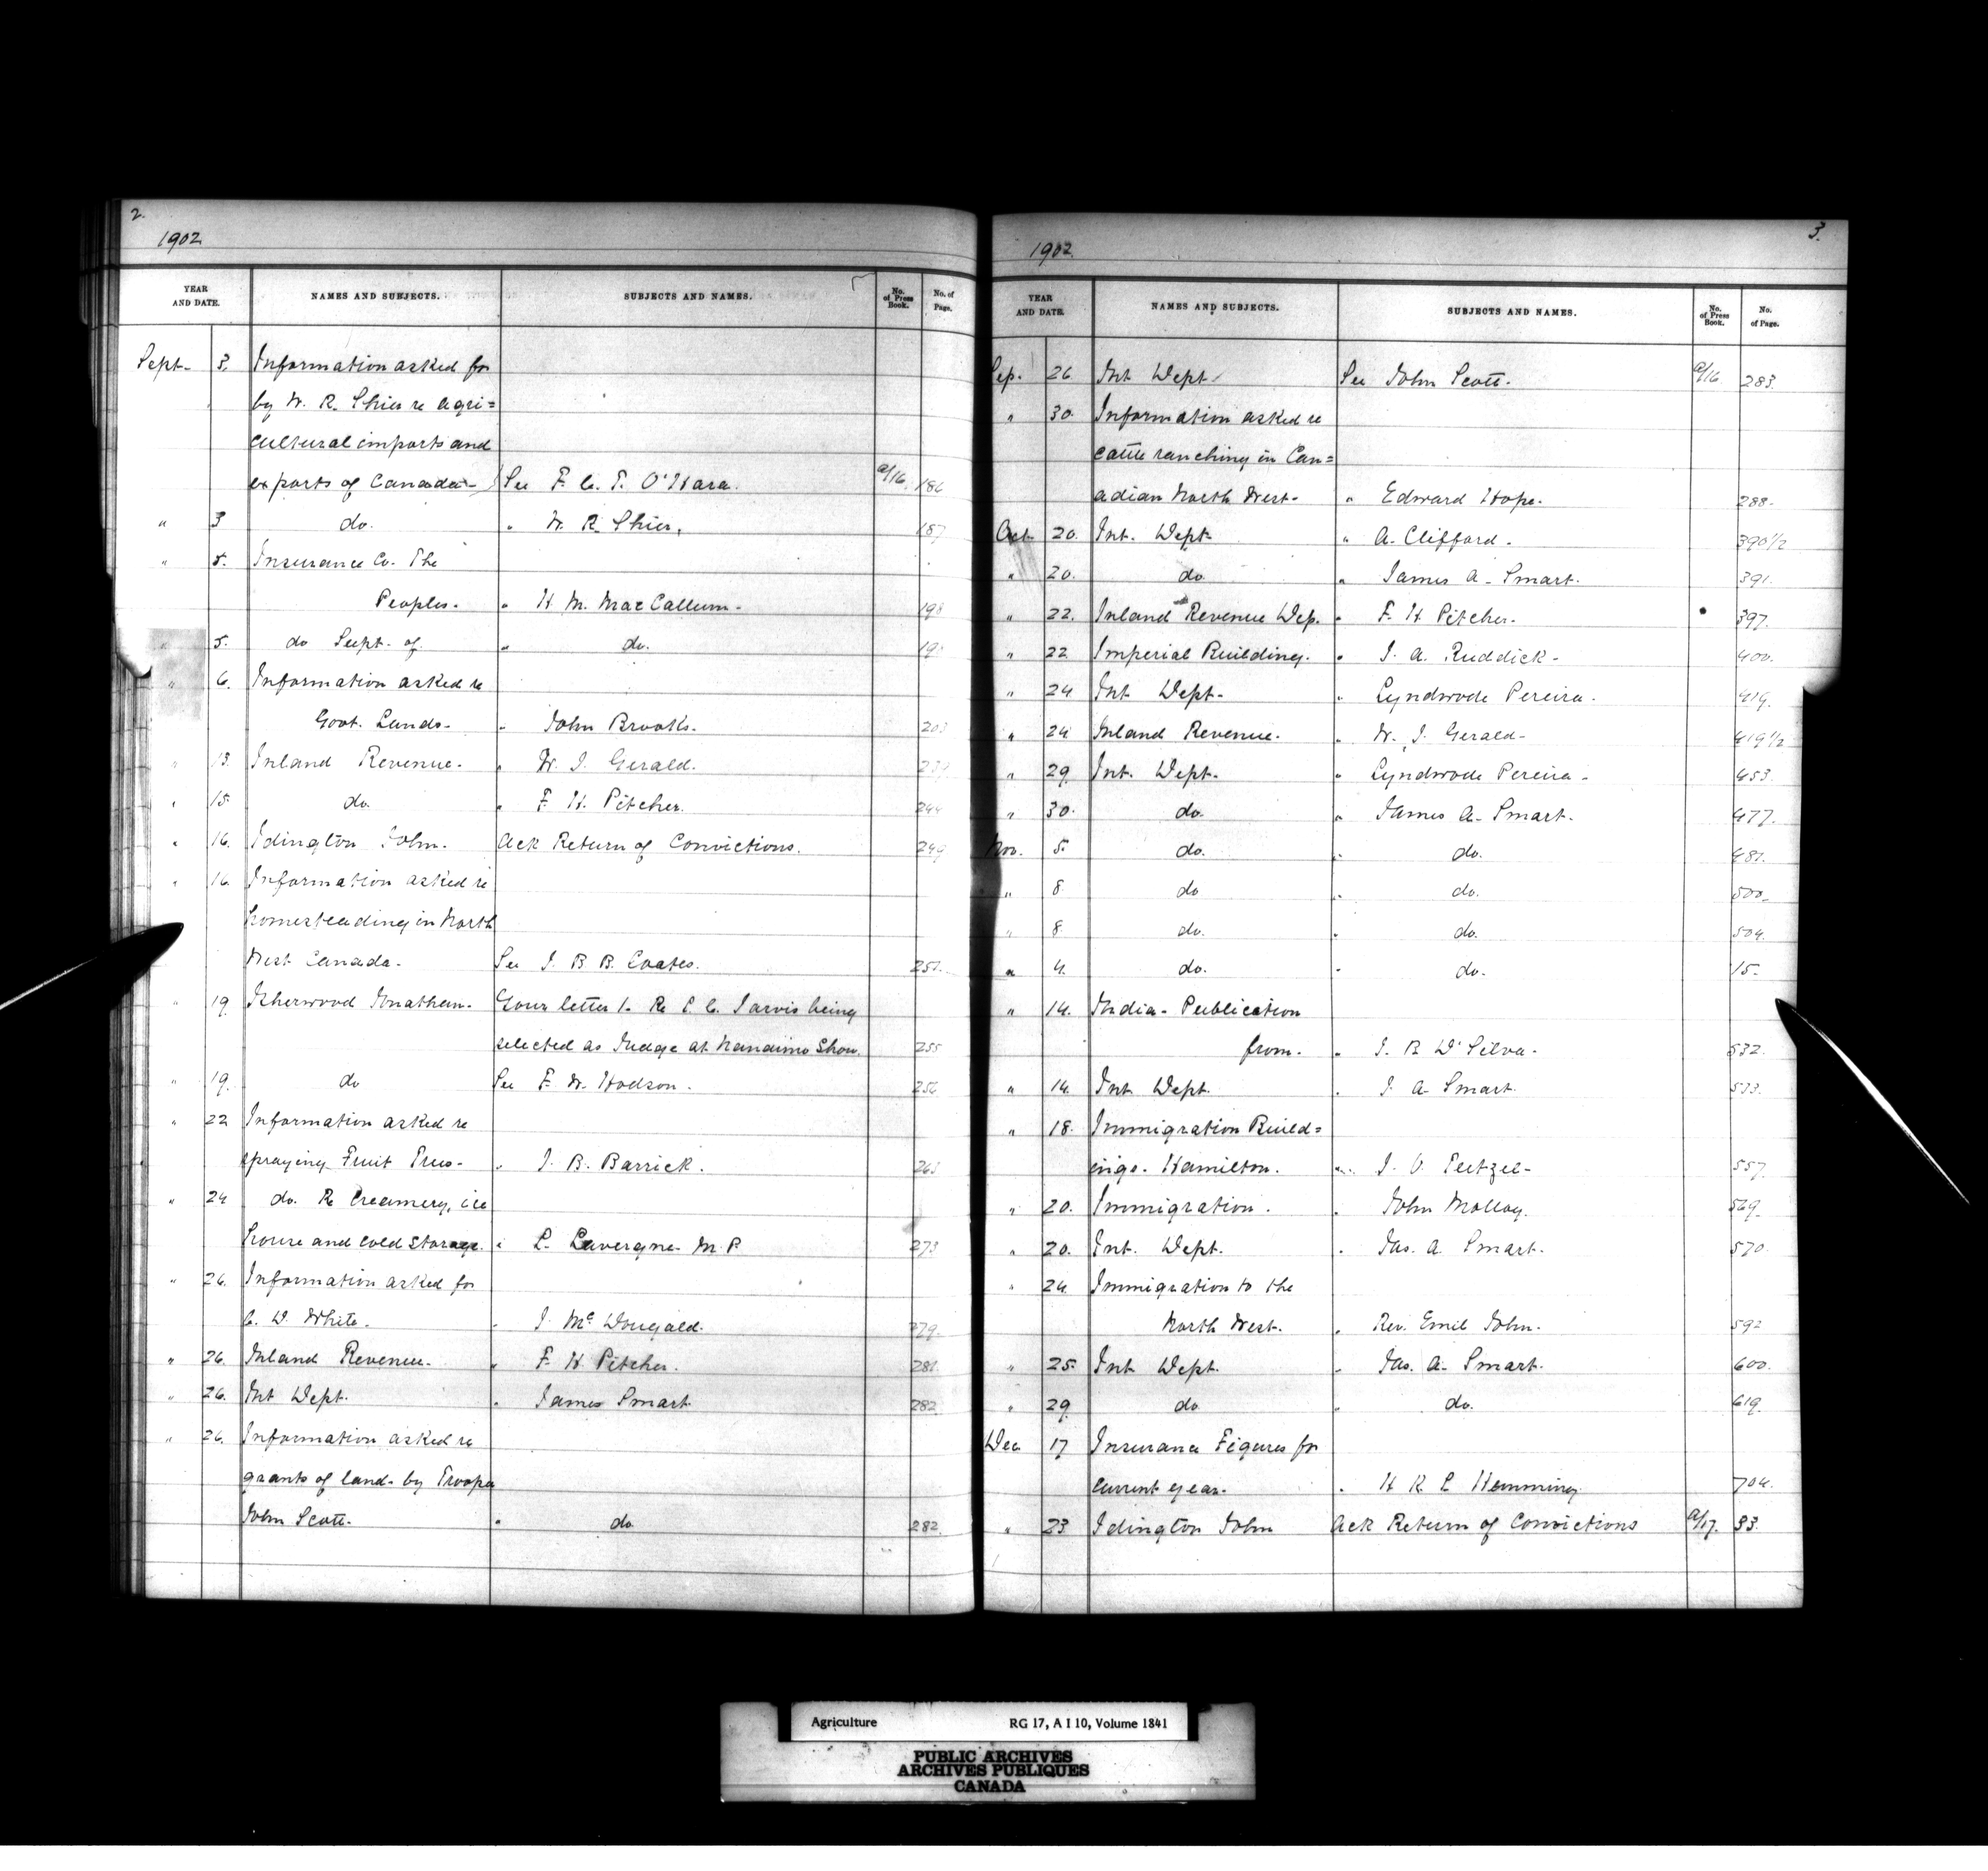 2.
1902
YEAR AND DATE. NAMES AND SUBJECTS. SUBJECTS AND NAMES. No. of Press Book. No. of Page.
Sept. 3. Information asked for
by W. R. Shier re agri=
cultural imports and
exports of Canada- } See F. C. T. O'Hara. a/16. 186
" 3 do. " W. R. Shier. 187
" 5. Insurance Co. The
Peoples. " H. M. MacCallum. 198
" 5. do Supt. of " do. 19
" 6. Information asked re
Govt. Lands. " John Brooks. 203
" 13. Inland Revenue. " W. J. Gerald.
" 15. do. " F. H. Pitcher. 244
" 16. Idington John. Ack Return of Convictions. 249
" 16. Information asked re
homesteading in North
West Canada. See J. B. B. Coates. 251.
" 19. Isherwood Jonathan. Your letter to Re S. C. Jarvis being
selected as Judge at Nanaimo Show. 255
" 19. do See F. W. Hodson. 256
" 22 Information asked re
spraying Fruit Trees. " J. B. Barrick. 263
" 24 do. Re Creamery, ice
house and cold storage. " L. Lavergne M.P. 273
" 26. Information asked for
C. D. White. " J. McDougald. 279.
" 26. Inland Revenue. " F. H. Pitcher. 281.
" 26. Int Dept. " James Smart. 282
" 26. Information asked re
grants of land by Trooper
John Scott. " do 282.
3.
1902
YEAR AND DATE. NAMES AND SUBJECTS. SUBJECTS AND NAMES. No. of Press Book. No. of Page.
Sep. 26 Int Dept. See John Scott. a/16 283.
" 30. Information asked re
cattle ranching in Can=
adian North West. " Edward Hope. 288.
Oct. 20. Int. Dept. " A. Clifford. 390 1/2
" 20. do " James A. Smart. 391.
" 22. Inland Revenue Dep. " F. H. Pitcher. 397.
" 22 Imperial Building. " J. A. Ruddick. 400.
" 24 Int Dept. " Lyndwode Pereira. 419.
" 24 Inland Revenue. " W. J. Gerald. 419 1/2
" 29 Int. Dept. " Lyndwode Pereira. 453.
" 30. do. " James A. Smart. 477.
Nov. 5. do. " do. 481.
" 8. do " do. 500.
" 8. do. " do. 504.
" 4. do. " do. 15.
" 14. India - Publication
from. " J. B D'Silva. 532.
" 14. Int Dept. " J. A. Smart. 533.
" 18. Immigration Build=
ings. Hamilton. " J. O.
557.
" 20. Immigration. " John Molloy. 569.
" 20. Int. Dept. " Jas. A. Smart. 570.
" 24 Immigration to the
North West. " Rev. Emil John. 592
" 25. Int Dept. " Jas. A. Smart. 600.
" 29 do " do. 619.
Dec 17 Insurance Figures for
current year. " H. R. S. Hemming. 704.
" 23 Idington John Ack Return of Convictions a/17. 33.
Agriculture RG 17, A I 10, Volume 1841
PUBLIC ARCHIVES
ARCHIVES PUBLIQUES
CANADA